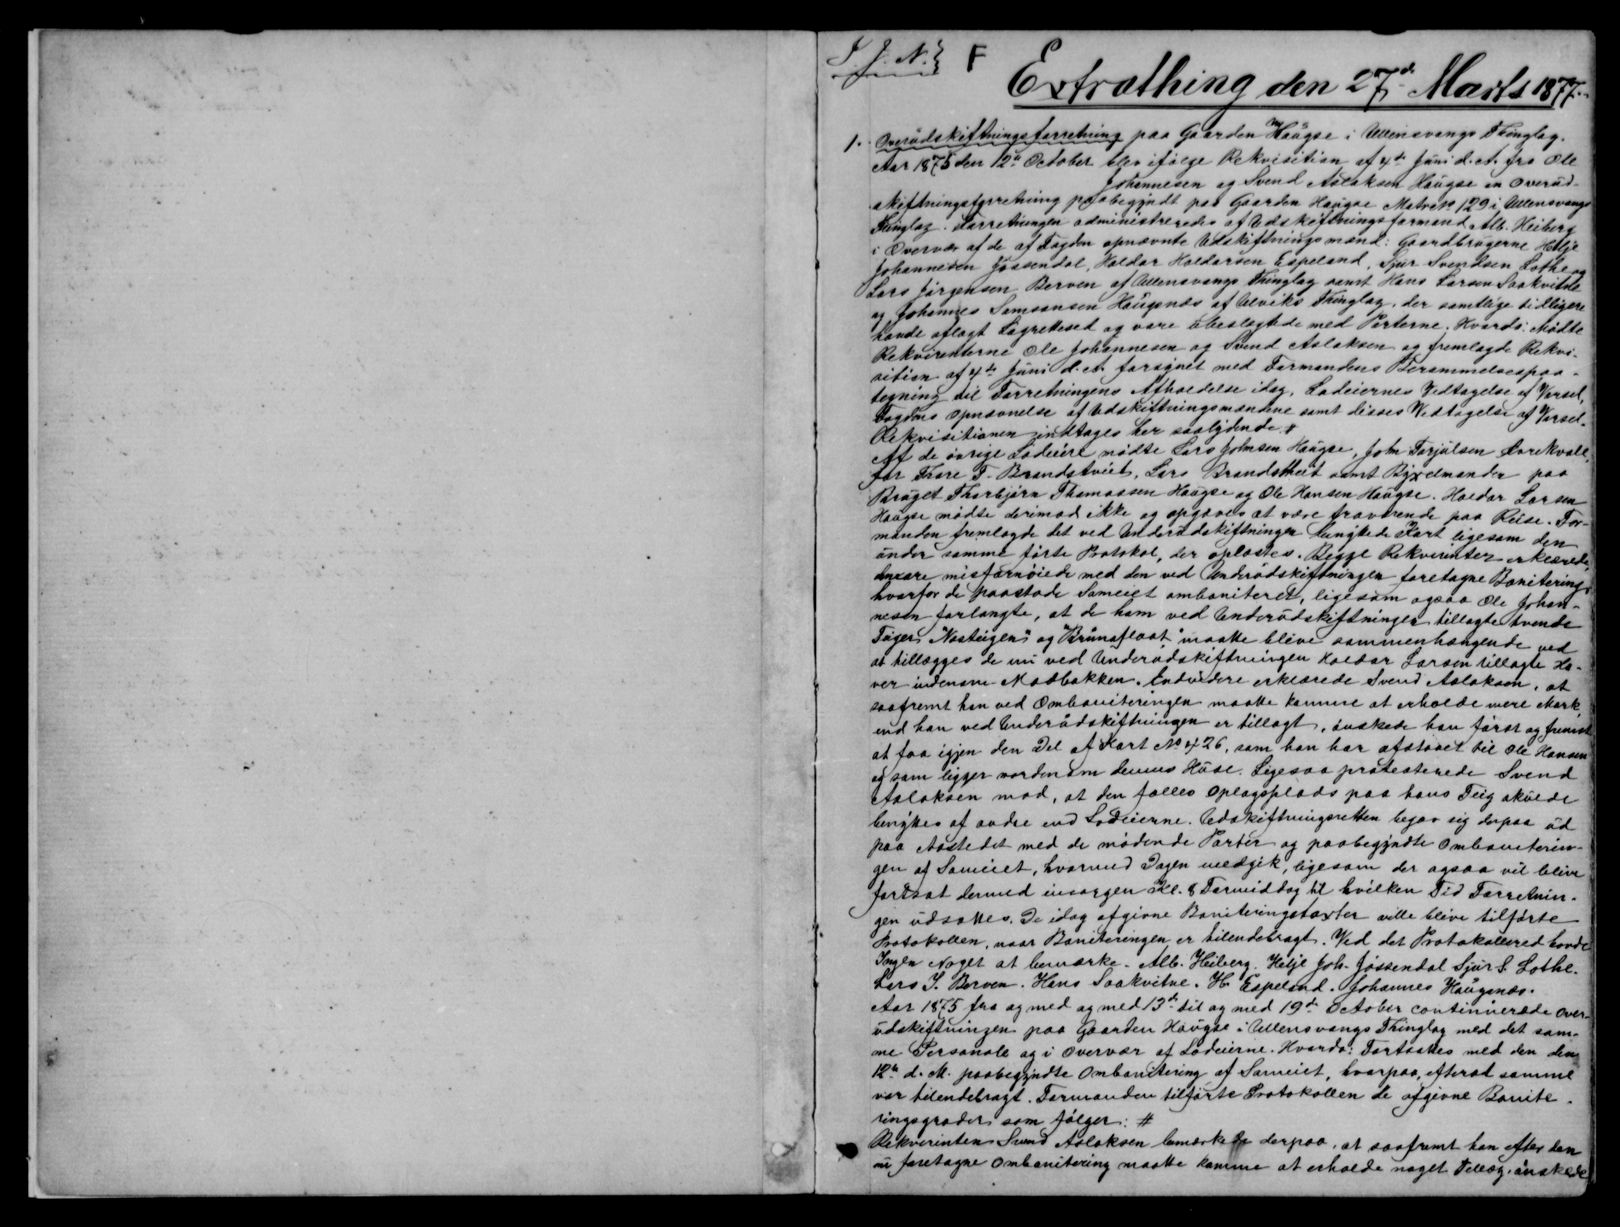 S. J. N. F
Extrathing den 27d Marts 1877.
1. Overudskiftningsforretning paa Gaarden Haugse i Ullensvangs Thinglag.
Aar 1875 den 12te October blev ifølge Rekvisition af 4de Juni d. A. fra Ole
Johannesen og Svend Aslaksen Haugse en Overud-
skiftningsforretning paabegyndt paa Gaarden Haugse Matr. No 129 i Ullensvangs
Thinglag. Forretningen administreredes af Udskiftningsformand Alb. Heiberg
i Overvær af de af Fogden opnævnte Udskiftningsmænd: Gaardbrugerne Helje
Johannesen Jossendal, Haldor Haldorsen Espeland, Sjur Svendsen Lothe og
Lars Jørgensen Berven af Ullensvangs Thinglag samt Hans Larsen Saakvitne
og Johannes Samsonsen Haugenæs af Ulviks Thinglag, der samtlige tidligere
havde aflagt Lagretteed og vare ubeslægtede med Parterne. Hvorda: Mødte
Rekvirenterne Ole Johannesen og Svend Aslaksen og fremlagde Rekvi-
sition af 4de Juni d. A. forsynet med Formandens Berammelsespaa-
tegning til Forretningens Afholdelse idag, Lodeiernes Vedtagelse af Varsel,
Fogdens Opnævnelse af Udskiftningsmændene samt disses Vedtagelse af Varsel.
Rekvisitionen indtages her saalydende #
Af de øvrige Lodeiere mødte Lars Johnsen Haugse, John Torjulsen
for Thore T. Brandstveit, Lars Brandstveit samt Bygselmanden paa
Bruget Thorbjørn Thomassen Haugse og Ole Hansen Haugse. Haldor Larsen
Haugse mødte derimod ikke og opgaves at være fraværende paa Reise. For-
manden fremlagde det ved Underudskiftningen benyttede Kart ligesom den
under samme førte Protokol, der oplæstes. Begge Rekvirenter erklærede
at være misfornøiede med den ved Underudskiftningen foretagne Bonitering,
hvorfor de paastode Sameiet omboniteret, ligesom ogsaa Ole Johan-
nesen forlangte, at de ham ved Underudskiftningen tillagte tvende
Teiger, "Nasteigen" og "Brunaflaat" maatte blive sammenhængende ved
at tillægges de nu ved Underudskiftningen Haldor Larsen tillagte Ha-
ver indenom Madbakken. Endvidere erklærede Svend Aslaksen, at
saafremt han ved Omboniteringen maatte komme at erholde mere Mark
end han ved Underudskiftningen er tillagt, ønskede han først og fremst
at faa igjen den Del af Kart No 426, som han har afstaaet til Ole Hansen
og som ligger nordenom dennes Huse. Ligesaa protesterede Svend
Aslaksen mod, at den fælles Oplagsplads paa hans Teig skulde
benyttes af andre end Lodeierne. Udskiftningsretten begav sig derpaa ud
paa Aastedet med de mødende Parter og paabegyndte Omboniterin-
gen af Sameiet, hvormed Dagen medgik, ligesom der ogsaa vil blive
fortsat dermed imorgen Kl. 8 Formiddag til hvilken Tid Forretnin-
gen udsattes. De idag afgivne Boniteringstaxter ville blive tilførte
Protokollen, naar Boniteringen er tilendebragt. Ved det Protokollered havde
Ingen Noget at bemærke. Alb. Heiberg. Helje Joh. Jossendal Sjur S. Lothe.
Lars J. Berven. Hans Saakvitne. H. Espeland. Johannes Haugenæs.
Aar 1875 fra og med og med 13de til og med 19de October continuerede Over-
udskiftningen paa Gaarden Haugse i Ullensvangs Thinglag med det sam-
me Personale og i Overvær af Lodeierne. Hvorda: Fortsattes med den den
12te d. M. paabegyndte Ombonitering af Sameiet, hvorpaa, efterat samme
var tilendebragt. Formanden tilførte Protokollen de afgivne Bonite-
ringsgrader som følger: #
Rekvirenten Svend Aslaksen bemærkede derpaa, at saafremt han efter den
nu foretagne Ombonitering maatte komme at erholde noget Tillæg, ønskede